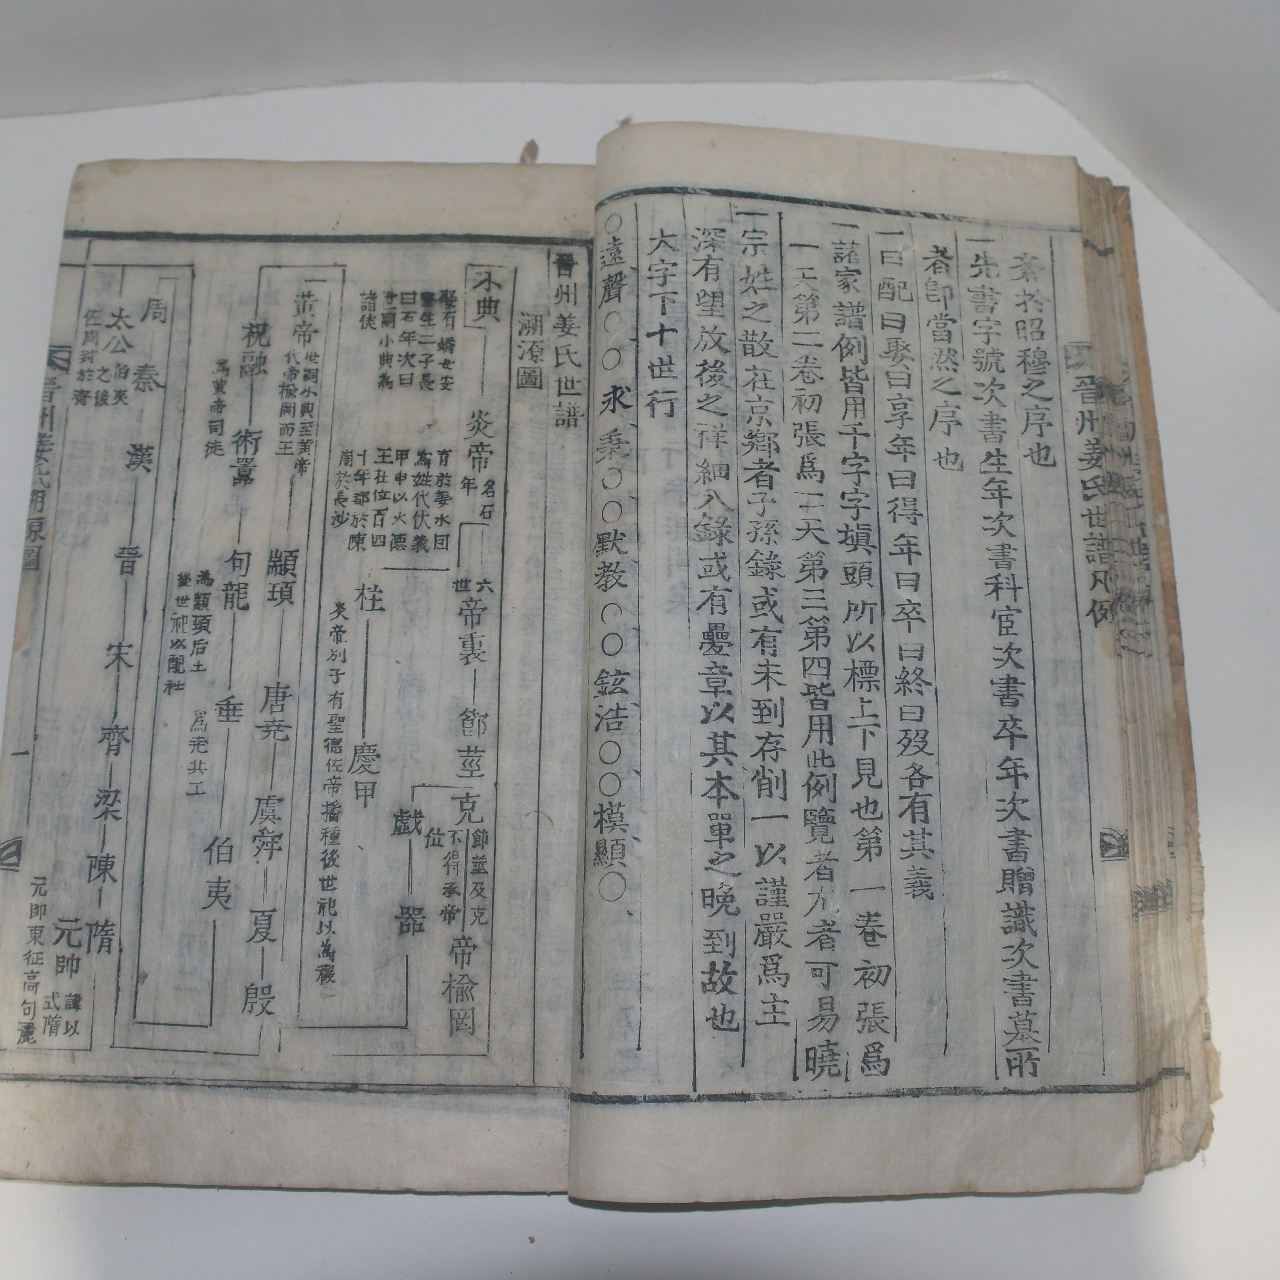 晋州姜氏世譜凡例
素於昭穆之序也
一先書字號次書生年次書科宦次書卒年次書贈識次書墓所
者即當然之序也
一曰配曰娶曰享年曰得年曰卒曰終曰歿各有其義
一諸家譜例皆用千字字塡頭所以標上下見也第一卷初張爲
一天第二卷初張爲二天第三第四皆用此例覽者九者可易曉
一宗姓之散在京鄕者子孫錄或有未到存削一以謹嚴爲主
深有望放後之祥細入錄或有疊章以其本單之晩到故也
大字下十世行
○遠聲○○求秉○○默教○○鉉浩○○模顯○
晋州姜氏世譜
溯源圖
少典
娶有蟜女安
登生二子長
曰石年次曰
世嗣小典爲
諸侯
炎帝
名石
年
育於姜水因
爲姓代伏義
甲申以火德
王在位百四
十年都於陳
崩於長沙
六
世
帝裏
節莖
克
節莖及克
不得承帝
位
帝楡岡
戱
器
柱
慶甲
炎帝別子有聖德佐帝播種後世祀以爲稷
黃帝
世嗣小典至黃帝
代帝楡岡而王
顓頊
唐堯
虞舜
夏
殷
祝融
爲黃帝司徒
術嚣
句龍
爲顓頊后土
後世祀以配社
垂
爲堯共工
伯夷
周
太公
伯夷
之後
佐周封於齊
秦
漢
晉
宋
齊
梁
陳
隋
元帥
諱以
式隋
元帥東征高句麗
晋州姜氏溯源圖
一